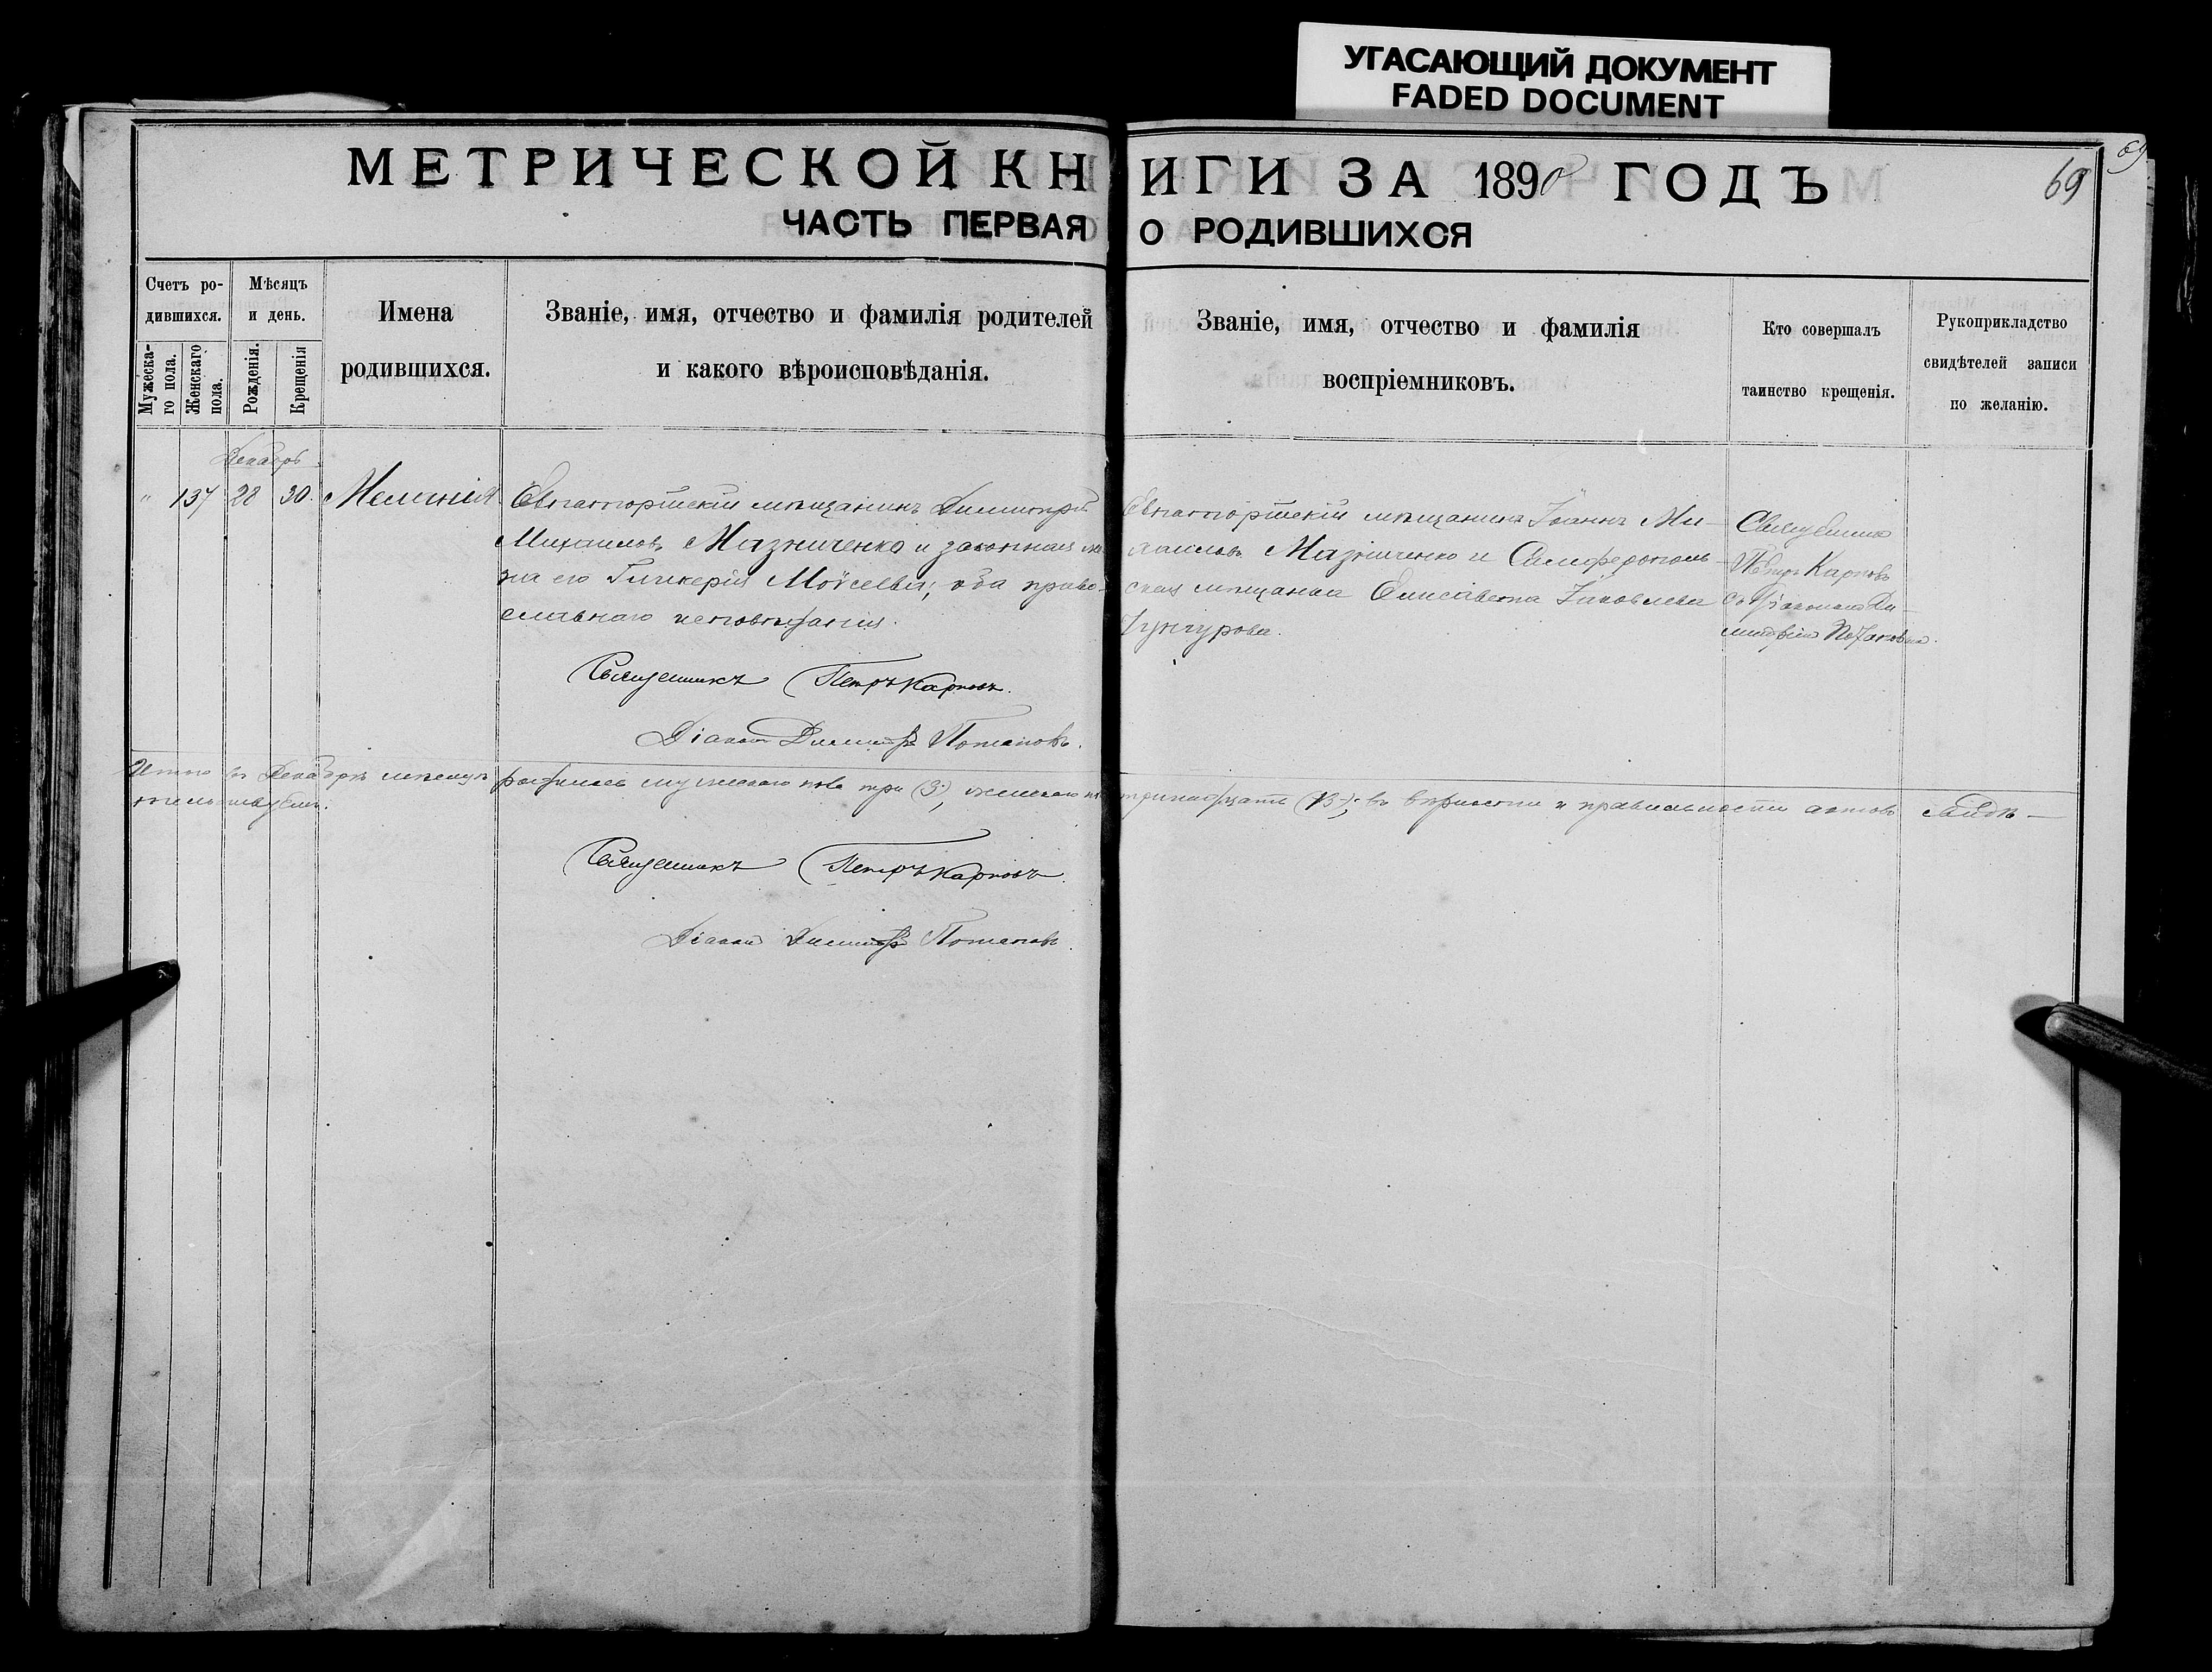 УГАСАЮЩИЙ ДОКУМЕНТ
FADED DOCUMENT
МЕТРИЧЕСКОЙ КНИГИ ЗА 1890 ГОДЪ
69
69
ЧАСТЬ ПЕРВАЯ О РОДИВШИХСЯ
Счетъ ро-
дившихся.
Мужеска-
го пола.
Женскаго
пола.
Мѣсяцъ
и день.
Рожденія.
Крещенія
Имена
родившихся.
Званіе, имя, отчество и фамилія родителей
и какого вѣроисповѣданія.
Званіе, имя, отчество и фамилія
воспріемниковъ.
Кто совершалъ
таинство крещенія.
Рукоприкладство
свидѣтелей записи
по желанію.
Декабрь
" 137 28 30. Меланія
Евпаторійскій мѣщанинъ Димитрій
Михаиловъ Мазниченко и законная же-
на его Гликерія Моѵсеева, оба право-
славнаго исповѣданія.
Евпаторійскій мѣщанинъ Іоаннъ Ми-
хаиловъ Мазниченко и Симферополь-
ская мѣщанка Елисавета Іаковлева
Гунгурова.
Священникъ
Петръ Карповъ
съ діакономъ Ди-
митріемъ Потаповымъ.
Священникъ Петръ Карповъ.
Діаконъ Димитрій Потаповъ.
Итого въ Декабрѣ мѣсяцѣ родилось мужескаго пола три (3), женскаго пола тринадцать (13); въ вѣрности и правильности актовъ свидѣ-
тельствуемъ.
Священникъ Петръ Карповъ.
Діаконъ Димитрій Потаповъ.